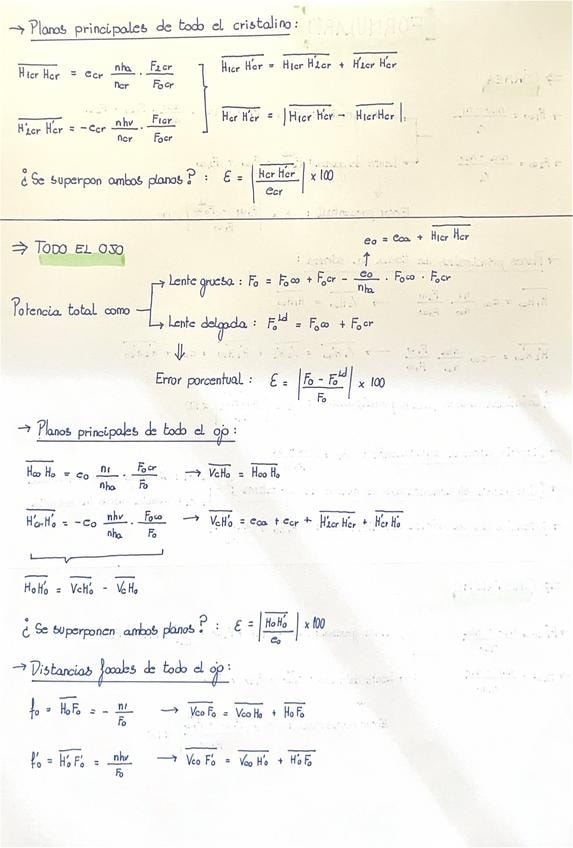 → Planos principales de todo el cristalino:
H1cr Hcr = ecr nha/ncr · F2cr/Focr
H1cr H'cr = H1cr H'2cr + H'2cr H'cr
H'2cr H'cr = -ecr nhv/ncr · F1cr/Focr
Hcr H'cr = |H1cr H'cr - H1cr Hcr|
¿Se superpon ambos planos?: ε = |Hcr H'cr/ecr| x 100
⇒ TODO EL OJO
eo = eca + H1cr Hcr
↑
Potencia total como
→ Lente gruesa: Fo = Foco + Focr - eo/nha · Foco · Focr
→ Lente delgada: Fo^ld = Foco + Focr
⇓
Error porcentual: ε = |Fo - Fo^ld/Fo| x 100
→ Planos principales de todo el ojo:
Hco Ho = eo n1/nha · Focr/Fo → VcHo = Hco Ho
H'cr H'o = -eo nhv/nha · Foco/Fo → VcH'o = eca + ecr + H'2cr H'cr + H'cr H'o
HoH'o = VcH'o - VcHo
¿Se superponen ambos planos?: ε = |HoH'o/eo| x 100
→ Distancias focales de todo el ojo:
fo = HoFo = - n1/Fo → Vco Fo = Vco Ho + Ho Fo
f'o = H'o F'o = nhv/Fo → Vco F'o = Vco H'o + H'o Fo